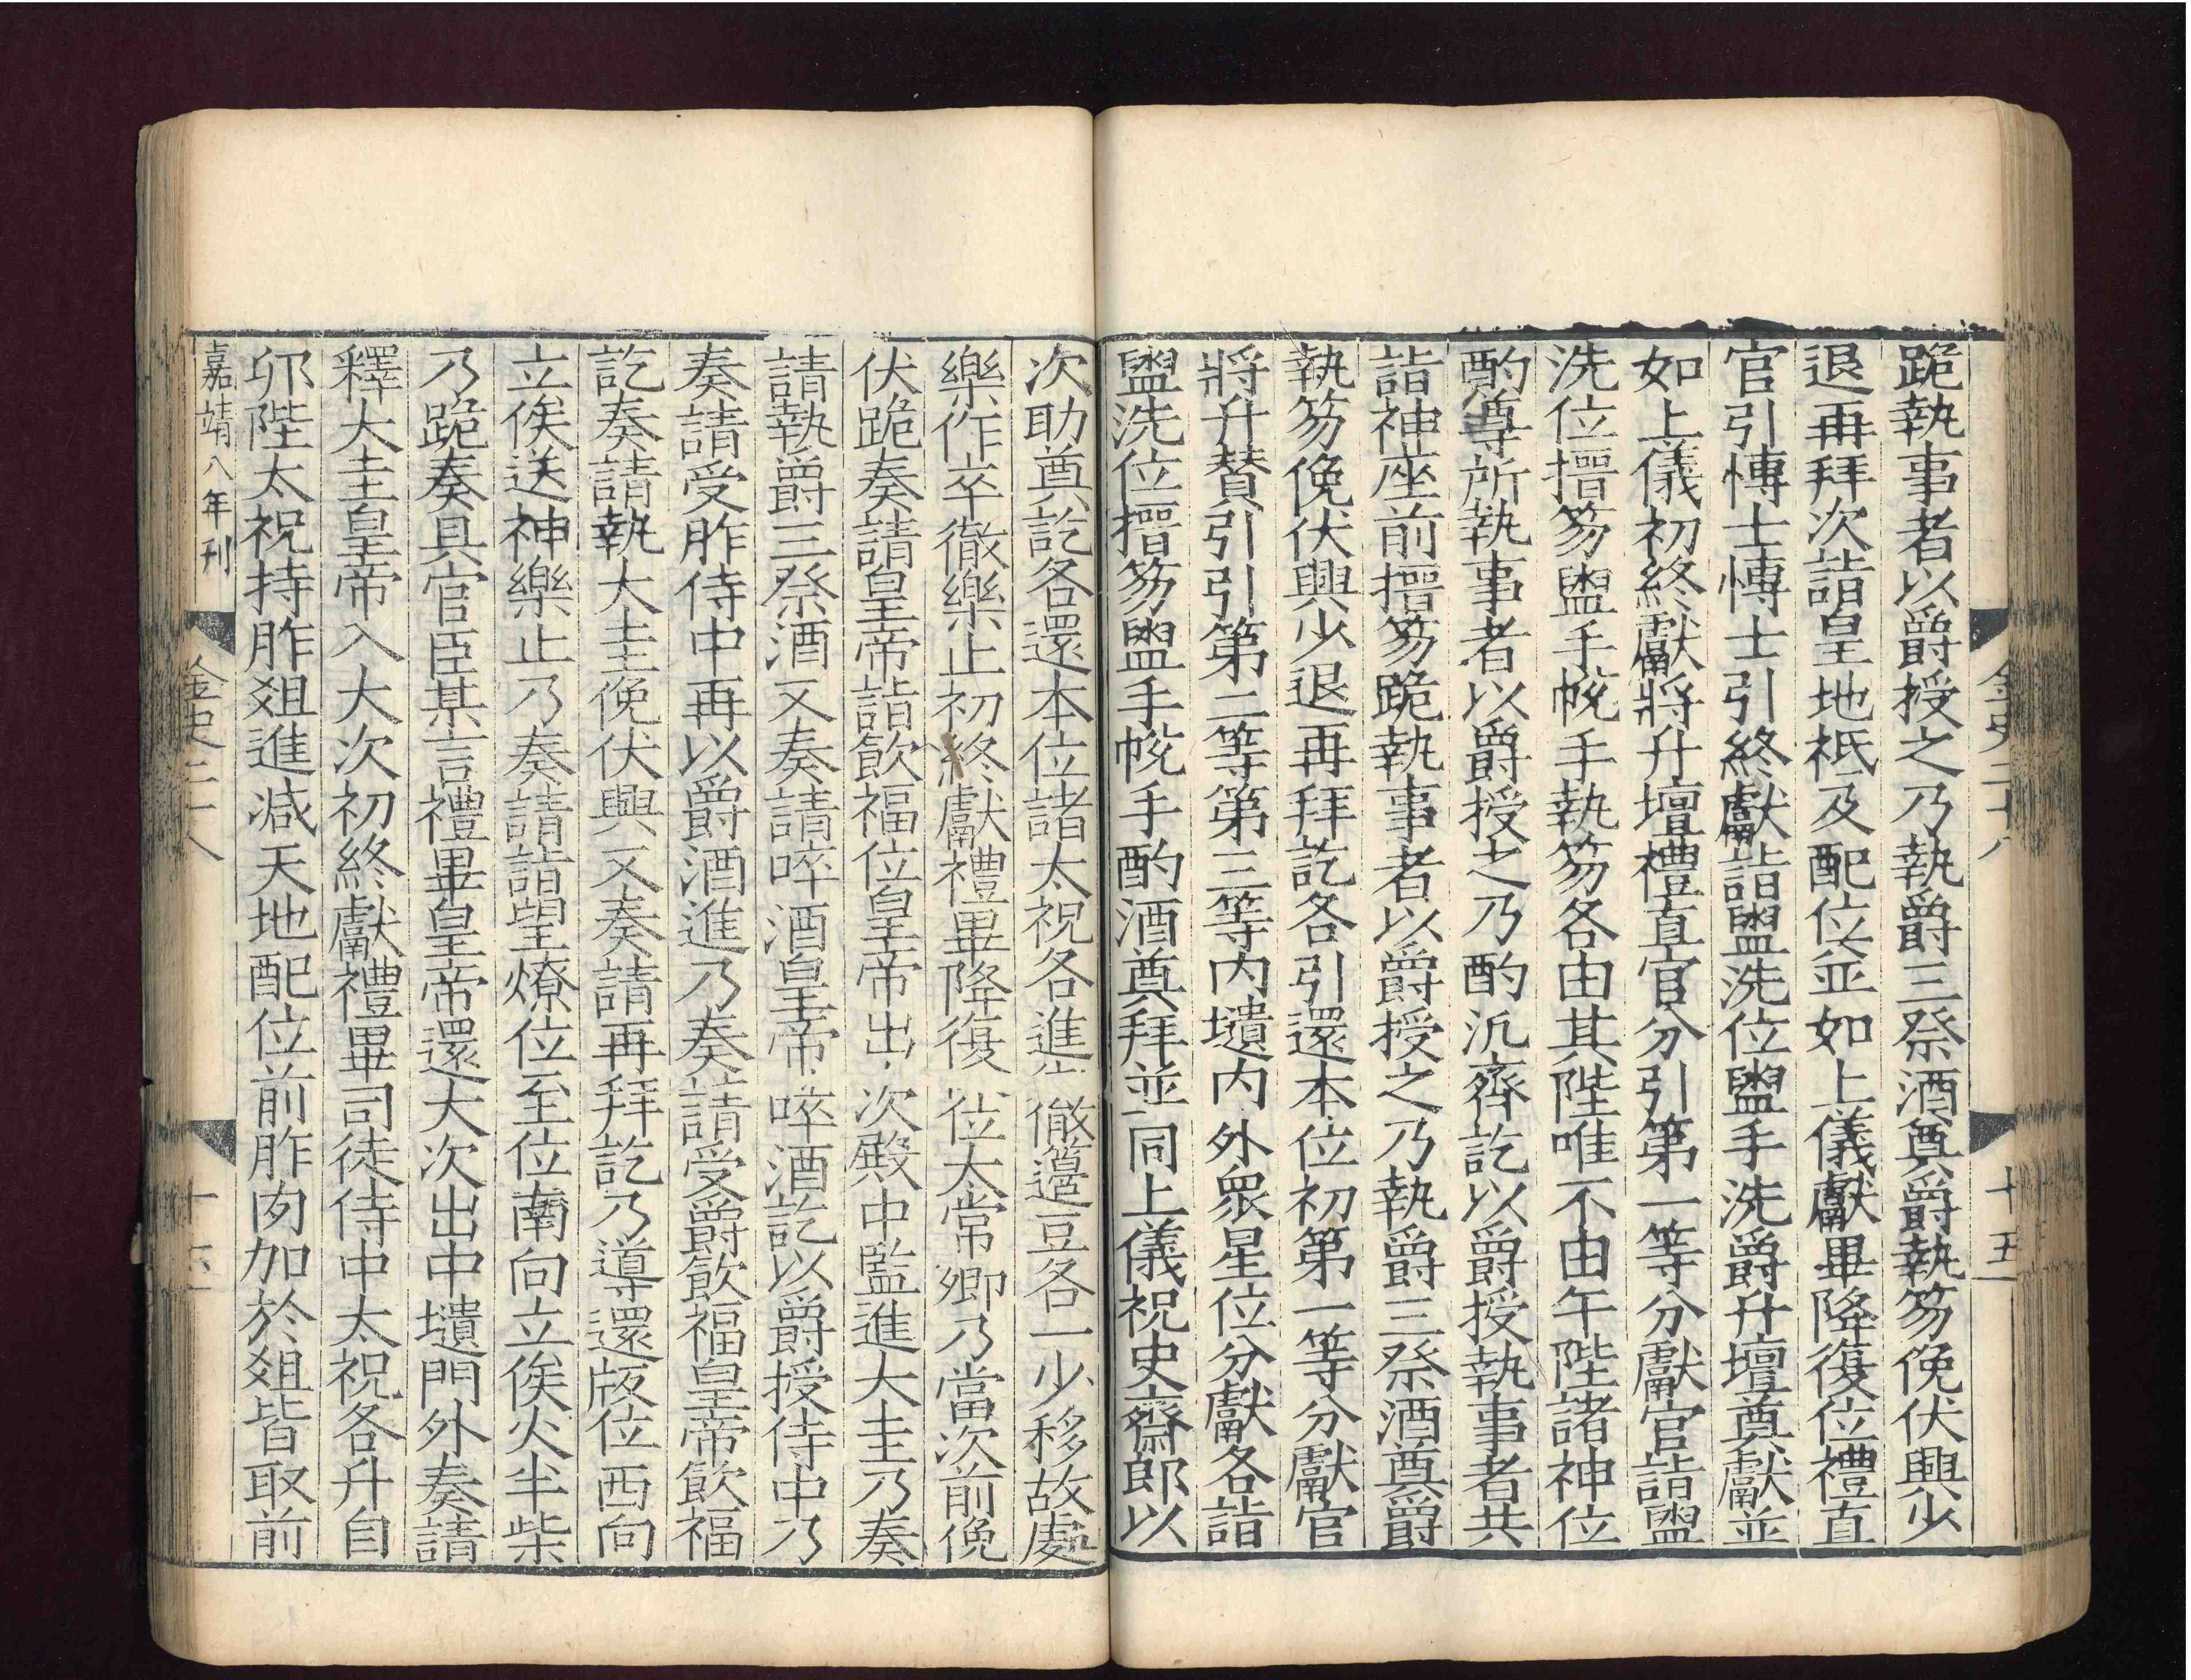 金史二十八
十五
跪執事者以爵授之乃執爵三祭酒奠爵執笏俛伏興少
退再拜次詣皇地祇及配位並如上儀獻畢降復位禮直
官引博士博士引終獻詣盥洗位盥手洗爵升壇奠獻並
如上儀初終獻將升壇禮直官分引第一等分獻官詣盥
洗位搢笏盥手帨手執笏各由其陛唯不由午陛諸神位
酌尊所執事者以爵授之乃酌汎齊訖以爵授執事者共
詣神座前搢笏跪執事者以爵授之乃執爵三祭酒奠爵
執笏俛伏興少退再拜訖各引還本位初第一等分獻官
將升贊引引第二等第三等內壝內外衆星位分獻各詣
盥洗位搢笏盥手帨手酌酒奠拜並同上儀祝史齋郎以
次助奠訖各還本位諸太祝各進徹籩豆各一少移故處
樂作卒徹樂止初終獻禮畢降復位太常卿乃當次前俛
伏跪奏請皇帝詣飲福位皇帝出次殿中監進大圭乃奏
請執爵三祭酒又奏請啐酒皇帝啐酒訖以爵授侍中乃
奏請受胙侍中再以爵酒進乃奏請受爵飲福皇帝飲福
訖奏請執大圭俛伏興又奏請再拜訖乃導還版位西向
立俟送神樂止乃奏請詣望燎位至位南向立俟火半柴
乃跪奏具官臣某言禮畢皇帝還大次出中壝門外奏請
釋大圭皇帝入大次初終獻禮畢司徒侍中太祝各升自
卯陛太祝持胙爼進減天地配位前胙肉加於爼皆取前
嘉靖八年刊
金史二十八
十六